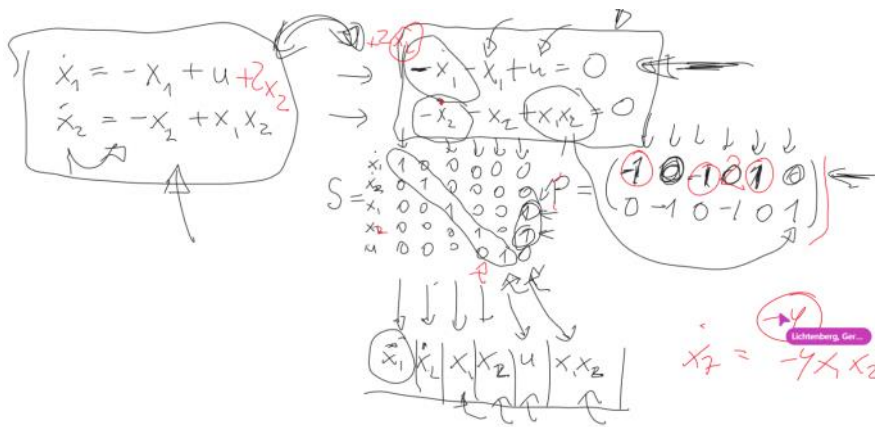 ẋ₁ = -x₁ + u +2x₂
ẋ₂ = -x₂ + x₁x₂
+2x₂
-ẋ₁ - x₁ + u = 0
-ẋ₂ - x₂ + x₁x₂ = 0
S =
ẋ₁ 1 0 0 0 0 0
ẋ₂ 0 1 0 0 0 0
x₁ 0 0 1 0 0 1
x₂ 0 0 0 1 0 1
u 0 0 0 0 1 0
P =
-1 0 -1 2 1 0
0 -1 0 -1 0 1
ẋ₁ | ẋ₂ | x₁ | x₂ | u | x₁x₂
-4
Lichtenberg, Ger...
ẋ₂ = -4x₁x₂